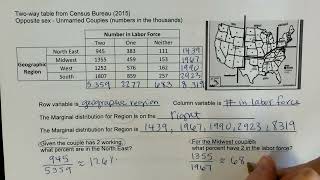 Two-way table from Census Bureau (2015)
Opposite sex - Unmarried Couples (numbers in the thousands)
Number in Labor Force
Two One Neither
Geographic Region
North East 945 383 111 1439
Midwest 1355 459 153 1967
West 1252 576 162 1990
South 1807 859 257 2923
5359 2277 683 8319
Row variable is geographic region Column variable is # in labor force
The Marginal distribution for Region is on the right
The Marginal distribution for Region is 1439, 1967, 1990, 2923, 8319
Given the couple has 2 working, what percent are in the North East?
945/5359 ≈
For the Midwest couples what percent have 2 in the labor force?
1355/1967 ≈ 68